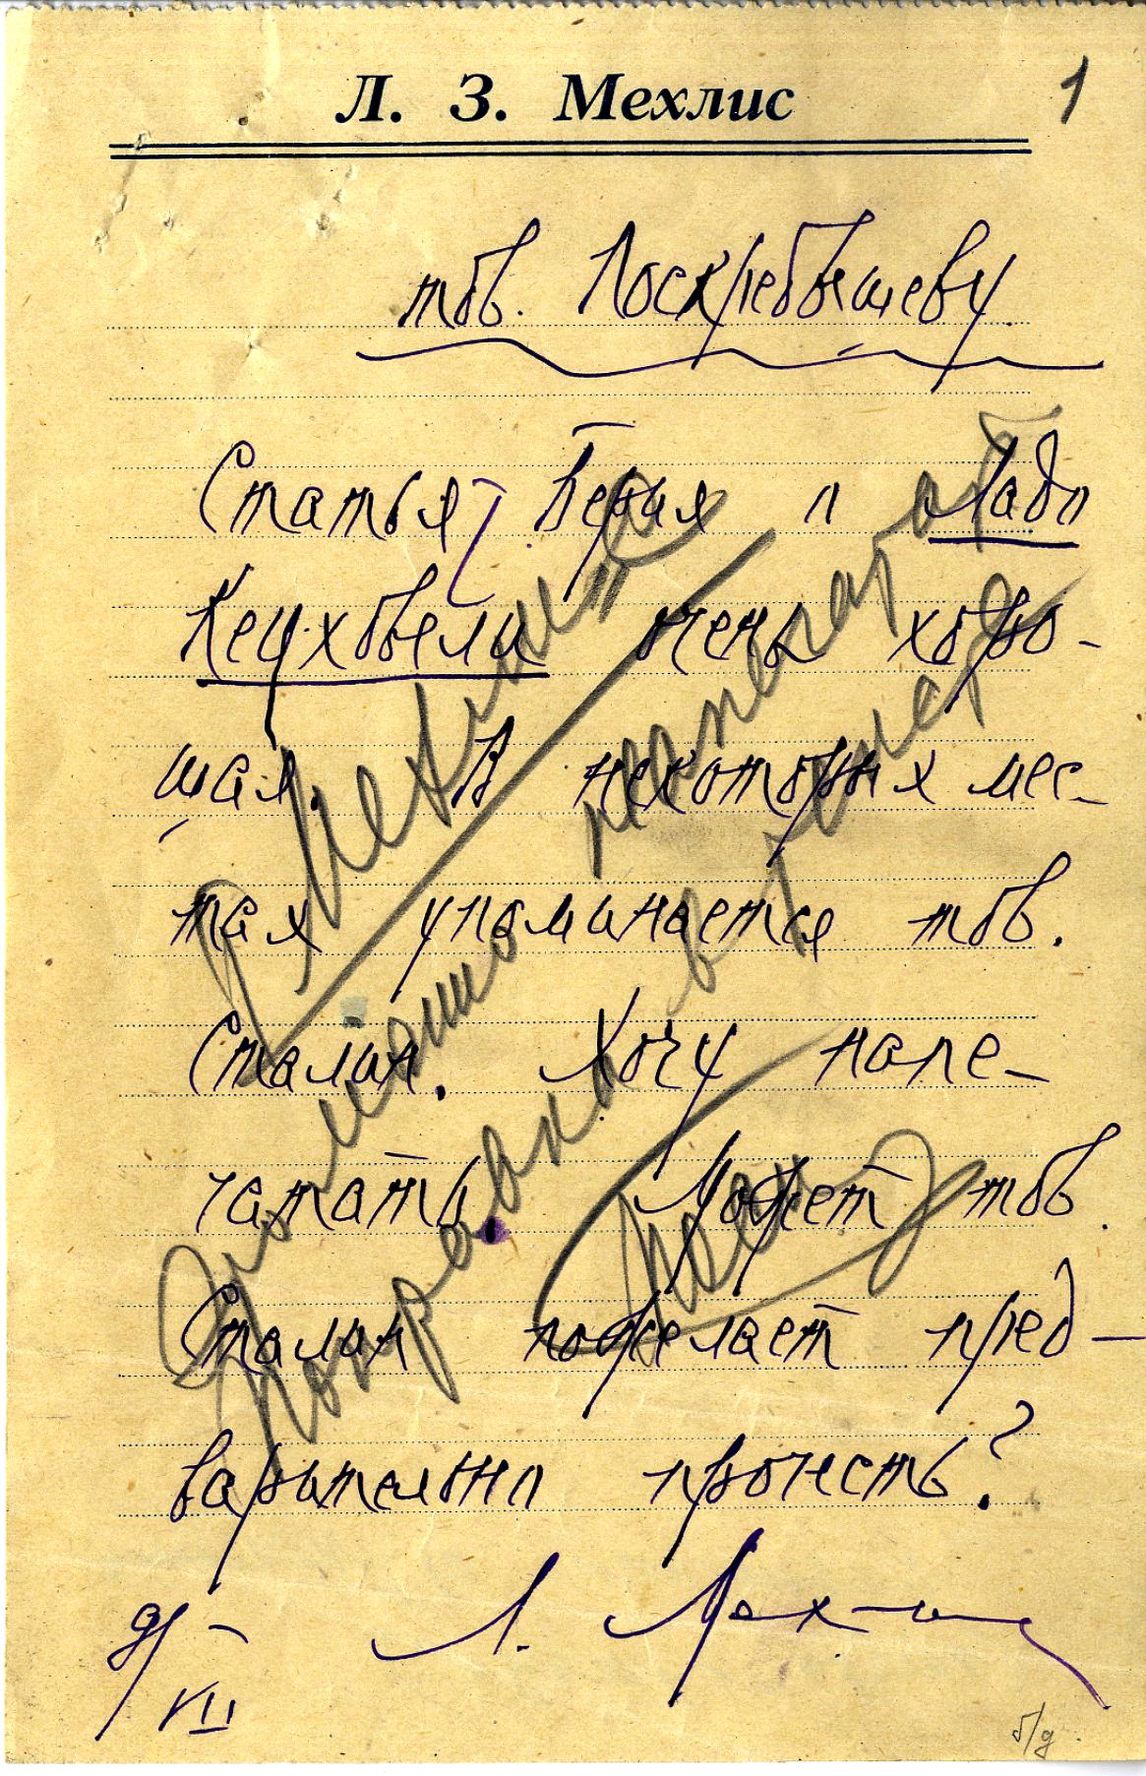 Л. З. Мехлис
1
тов. Поскребышеву.
Статья Берия о Ладо
Кецховели очень хоро-
шая. В некоторых мес-
тах упоминается тов.
Сталин. Хочу напе-
чатать. Может тов.
Сталин пожелает пред-
варительно прочесть?
9/VII
Л. Мехлис
б/д.
Мехлис
можно напечатать
Поправки в тексте